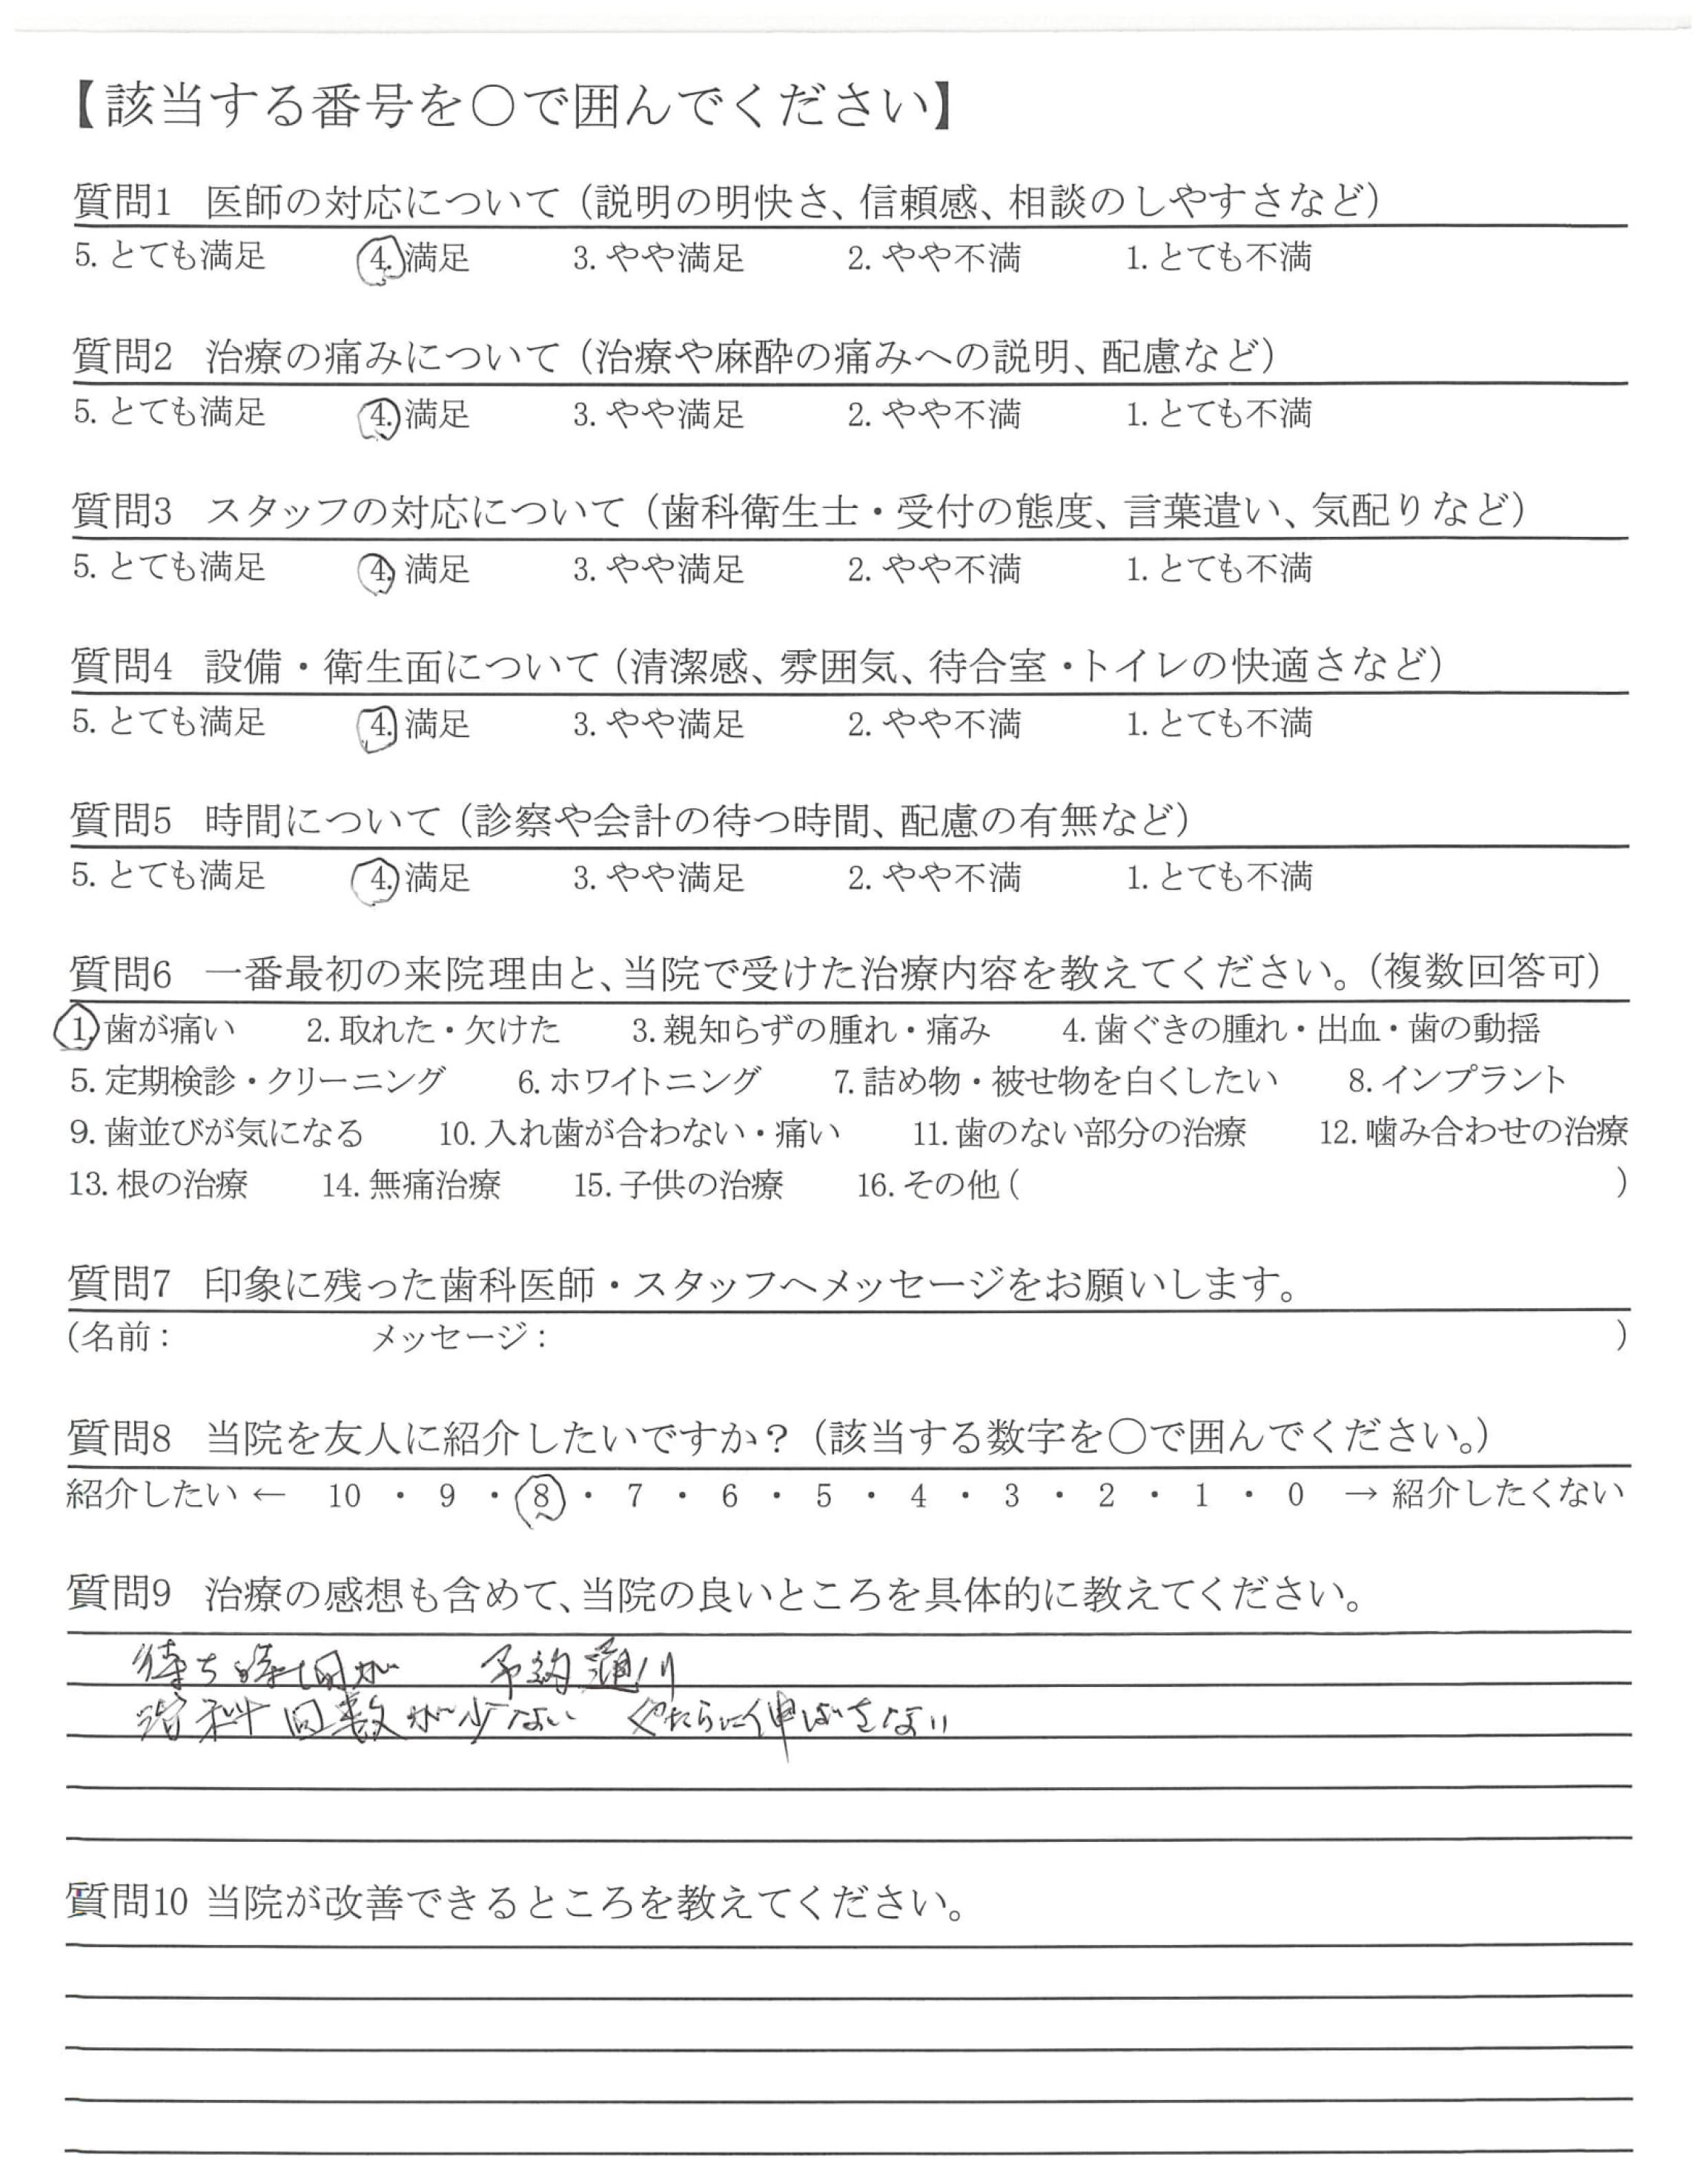 【該当する番号を○で囲んでください】
質問1 医師の対応について（説明の明快さ、信頼感、相談のしやすさなど）
5. とても満足 4. 満足 3. やや満足 2. やや不満 1. とても不満
質問2 治療の痛みについて（治療や麻酔の痛みへの説明、配慮など）
5. とても満足 4. 満足 3. やや満足 2. やや不満 1. とても不満
質問3 スタッフの対応について（歯科衛生士・受付の態度、言葉遣い、気配りなど）
5. とても満足 4. 満足 3. やや満足 2. やや不満 1. とても不満
質問4 設備・衛生面について（清潔感、雰囲気、待合室・トイレの快適さなど）
5. とても満足 4. 満足 3. やや満足 2. やや不満 1. とても不満
質問5 時間について（診察や会計の待つ時間、配慮の有無など）
5. とても満足 4. 満足 3. やや満足 2. やや不満 1. とても不満
質問6 一番最初の来院理由と、当院で受けた治療内容を教えてください。（複数回答可）
1. 歯が痛い 2. 取れた・欠けた 3. 親知らずの腫れ・痛み 4. 歯ぐきの腫れ・出血・歯の動揺
5. 定期検診・クリーニング 6. ホワイトニング 7. 詰め物・被せ物を白くしたい 8. インプラント
9. 歯並びが気になる 10. 入れ歯が合わない・痛い 11. 歯のない部分の治療 12. 噛み合わせの治療
13. 根の治療 14. 無痛治療 15. 子供の治療 16. その他（ ）
質問7 印象に残った歯科医師・スタッフへメッセージをお願いします。
（名前： メッセージ： ）
質問8 当院を友人に紹介したいですか？（該当する数字を○で囲んでください。）
紹介したい ← 10 ・ 9 ・ 8 ・ 7 ・ 6 ・ 5 ・ 4 ・ 3 ・ 2 ・ 1 ・ 0 → 紹介したくない
質問9 治療の感想も含めて、当院の良いところを具体的に教えてください。
待ち時間が 予約通り
回数が少ない 伸ばさない
質問10 当院が改善できるところを教えてください。